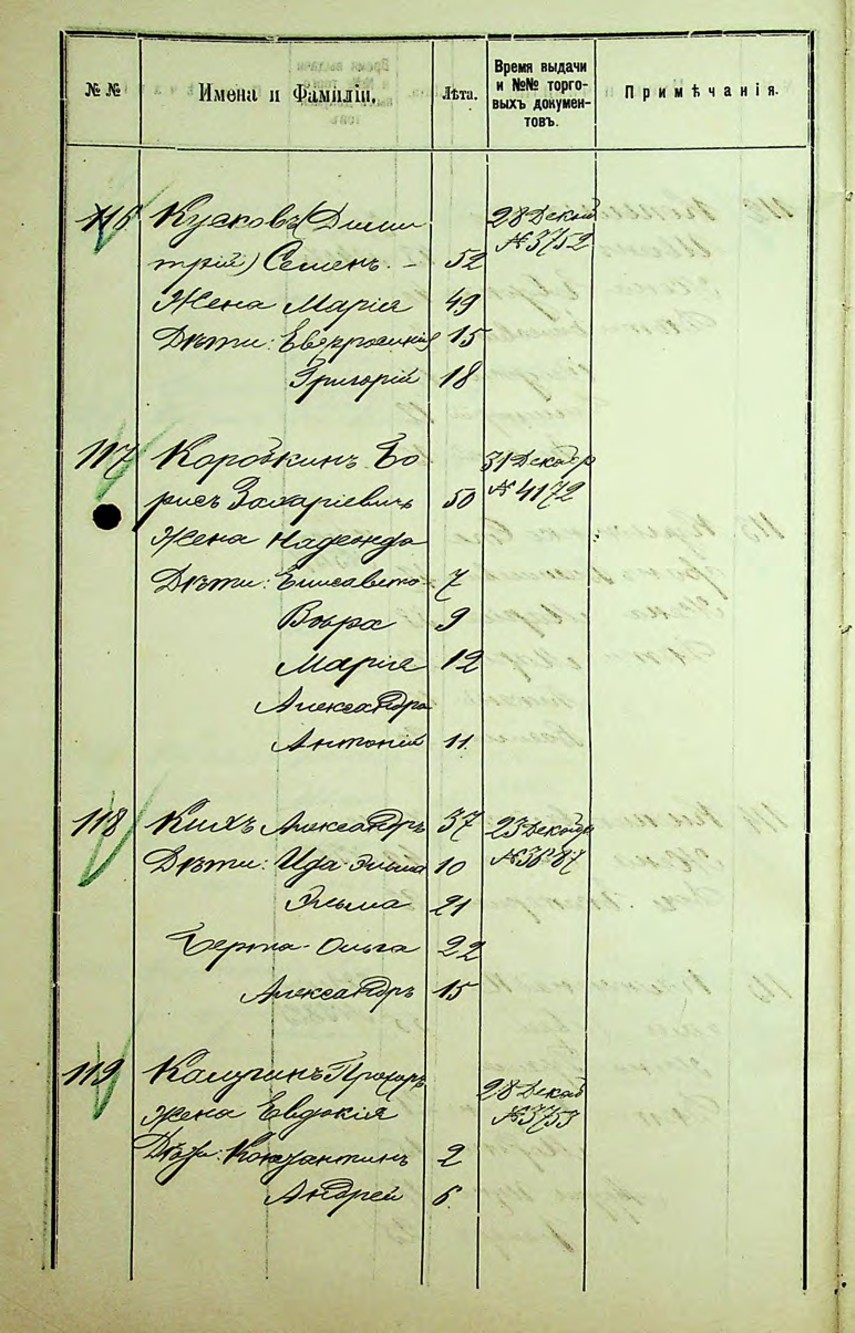 № №
Имена и Фамиліи.
Лѣта.
Время выдачи
и №№ торго-
выхъ докумен-
товъ.
Примѣчанія.
116 Кусковъ (Дими 28 Декаб
трій) Семенъ. – 52 № 3752
Жена Марія 49
Дѣти: Евфросинія 15
Григорій 18
117 Коробкинъ Бо 31 Декабр
рисъ Захаріевичъ 50 № 4172
Жена Надежда
Дѣти: Елисавета 7
Вѣра 9
Марія 12
Александра
Антоній 11
118 Кихъ Александръ 37 23 Декабр
Дѣти: Ида-Эльма 10 № 3687
Эльма 21
Берта-Ольга 22
Александръ 15
119 Калугинъ Прохоръ 28 Декаб
Жена Евдокія № 3753
Дѣти: Константинъ 2
Андрей 6